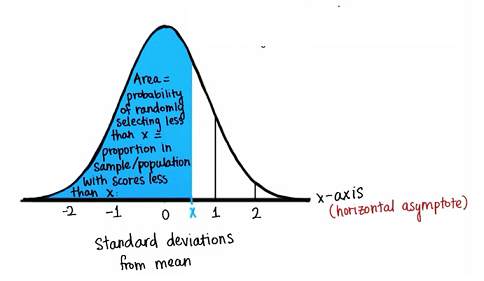 Area =
probability
of randomly
selecting less
than x =
proportion in
sample/population
with scores less
than x.
x-axis
(horizontal asymptote)
-2 -1 0 x 1 2
Standard deviations
from mean